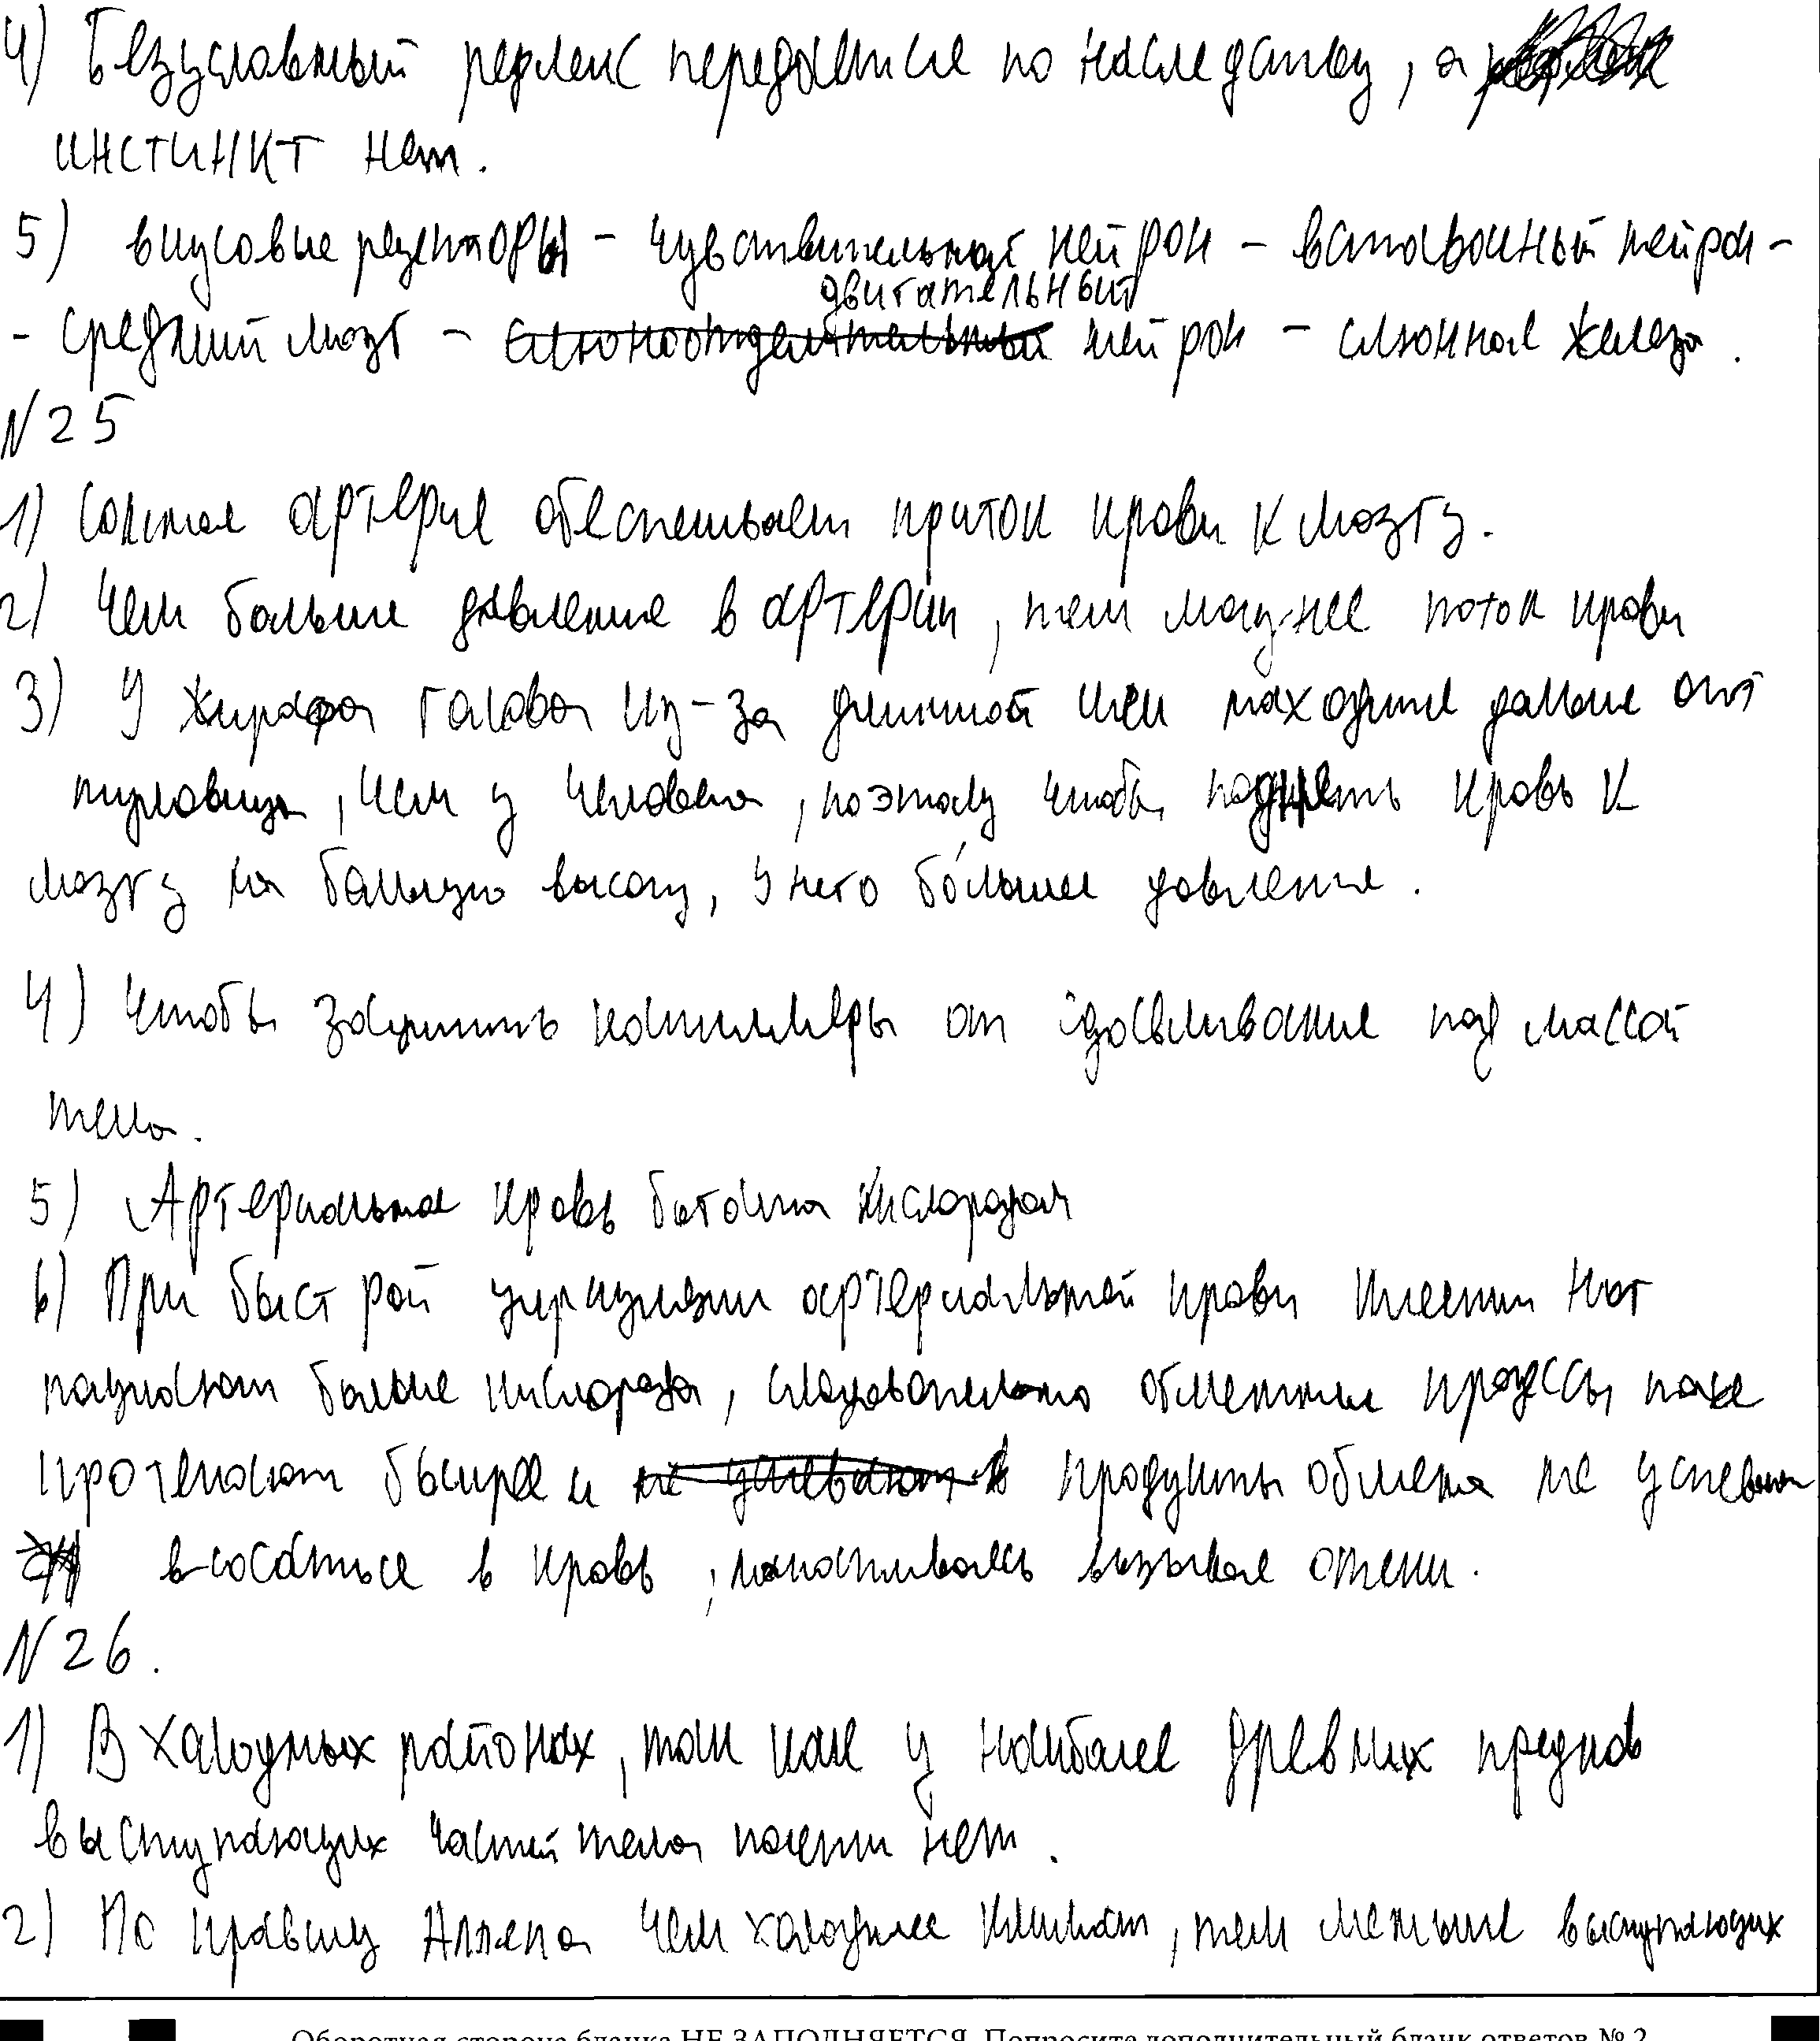 4) Безусловный рефлекс передаётся по наследству, а
инстинкт нет.
5) вкусовые рецепторы – чувствительный нейрон – вставочный нейрон –
двигательный
- средний мозг – слюноотделительный нейрон – слюнная железа.
N25
1) Сонная артерия обеспечивает приток крови к мозгу.
2) Чем больше давление в артерии, тем мощнее поток крови
3) У жирафа голова из-за длинной шеи находится дальше от
туловища, чем у человека, поэтому чтобы поднять кровь к
мозгу на большую высоту, у него бо́льшее давление.
4) Чтобы защитить капилляры от сдавливание под массой
тела.
5) Артериальная кровь богата кислородом
6) При быстрой циркуляции артериальной крови клетки ног
получают больше кислорода, следовательно обменные процессы тоже
протекают быстрее и не успевают в продукты обмена не успевают
всосаться в кровь, накапливаясь вызывая отеки.
N26.
1) В холодных районах, так как у наиболее древних предков
выступающих частей тела почти нет.
2) По правилу Аллена чем холоднее климат, тем меньше выступающих
Оборотная сторона бланка НЕ ЗАПОЛНЯЕТСЯ. Попросите дополнительный бланк ответов № 2